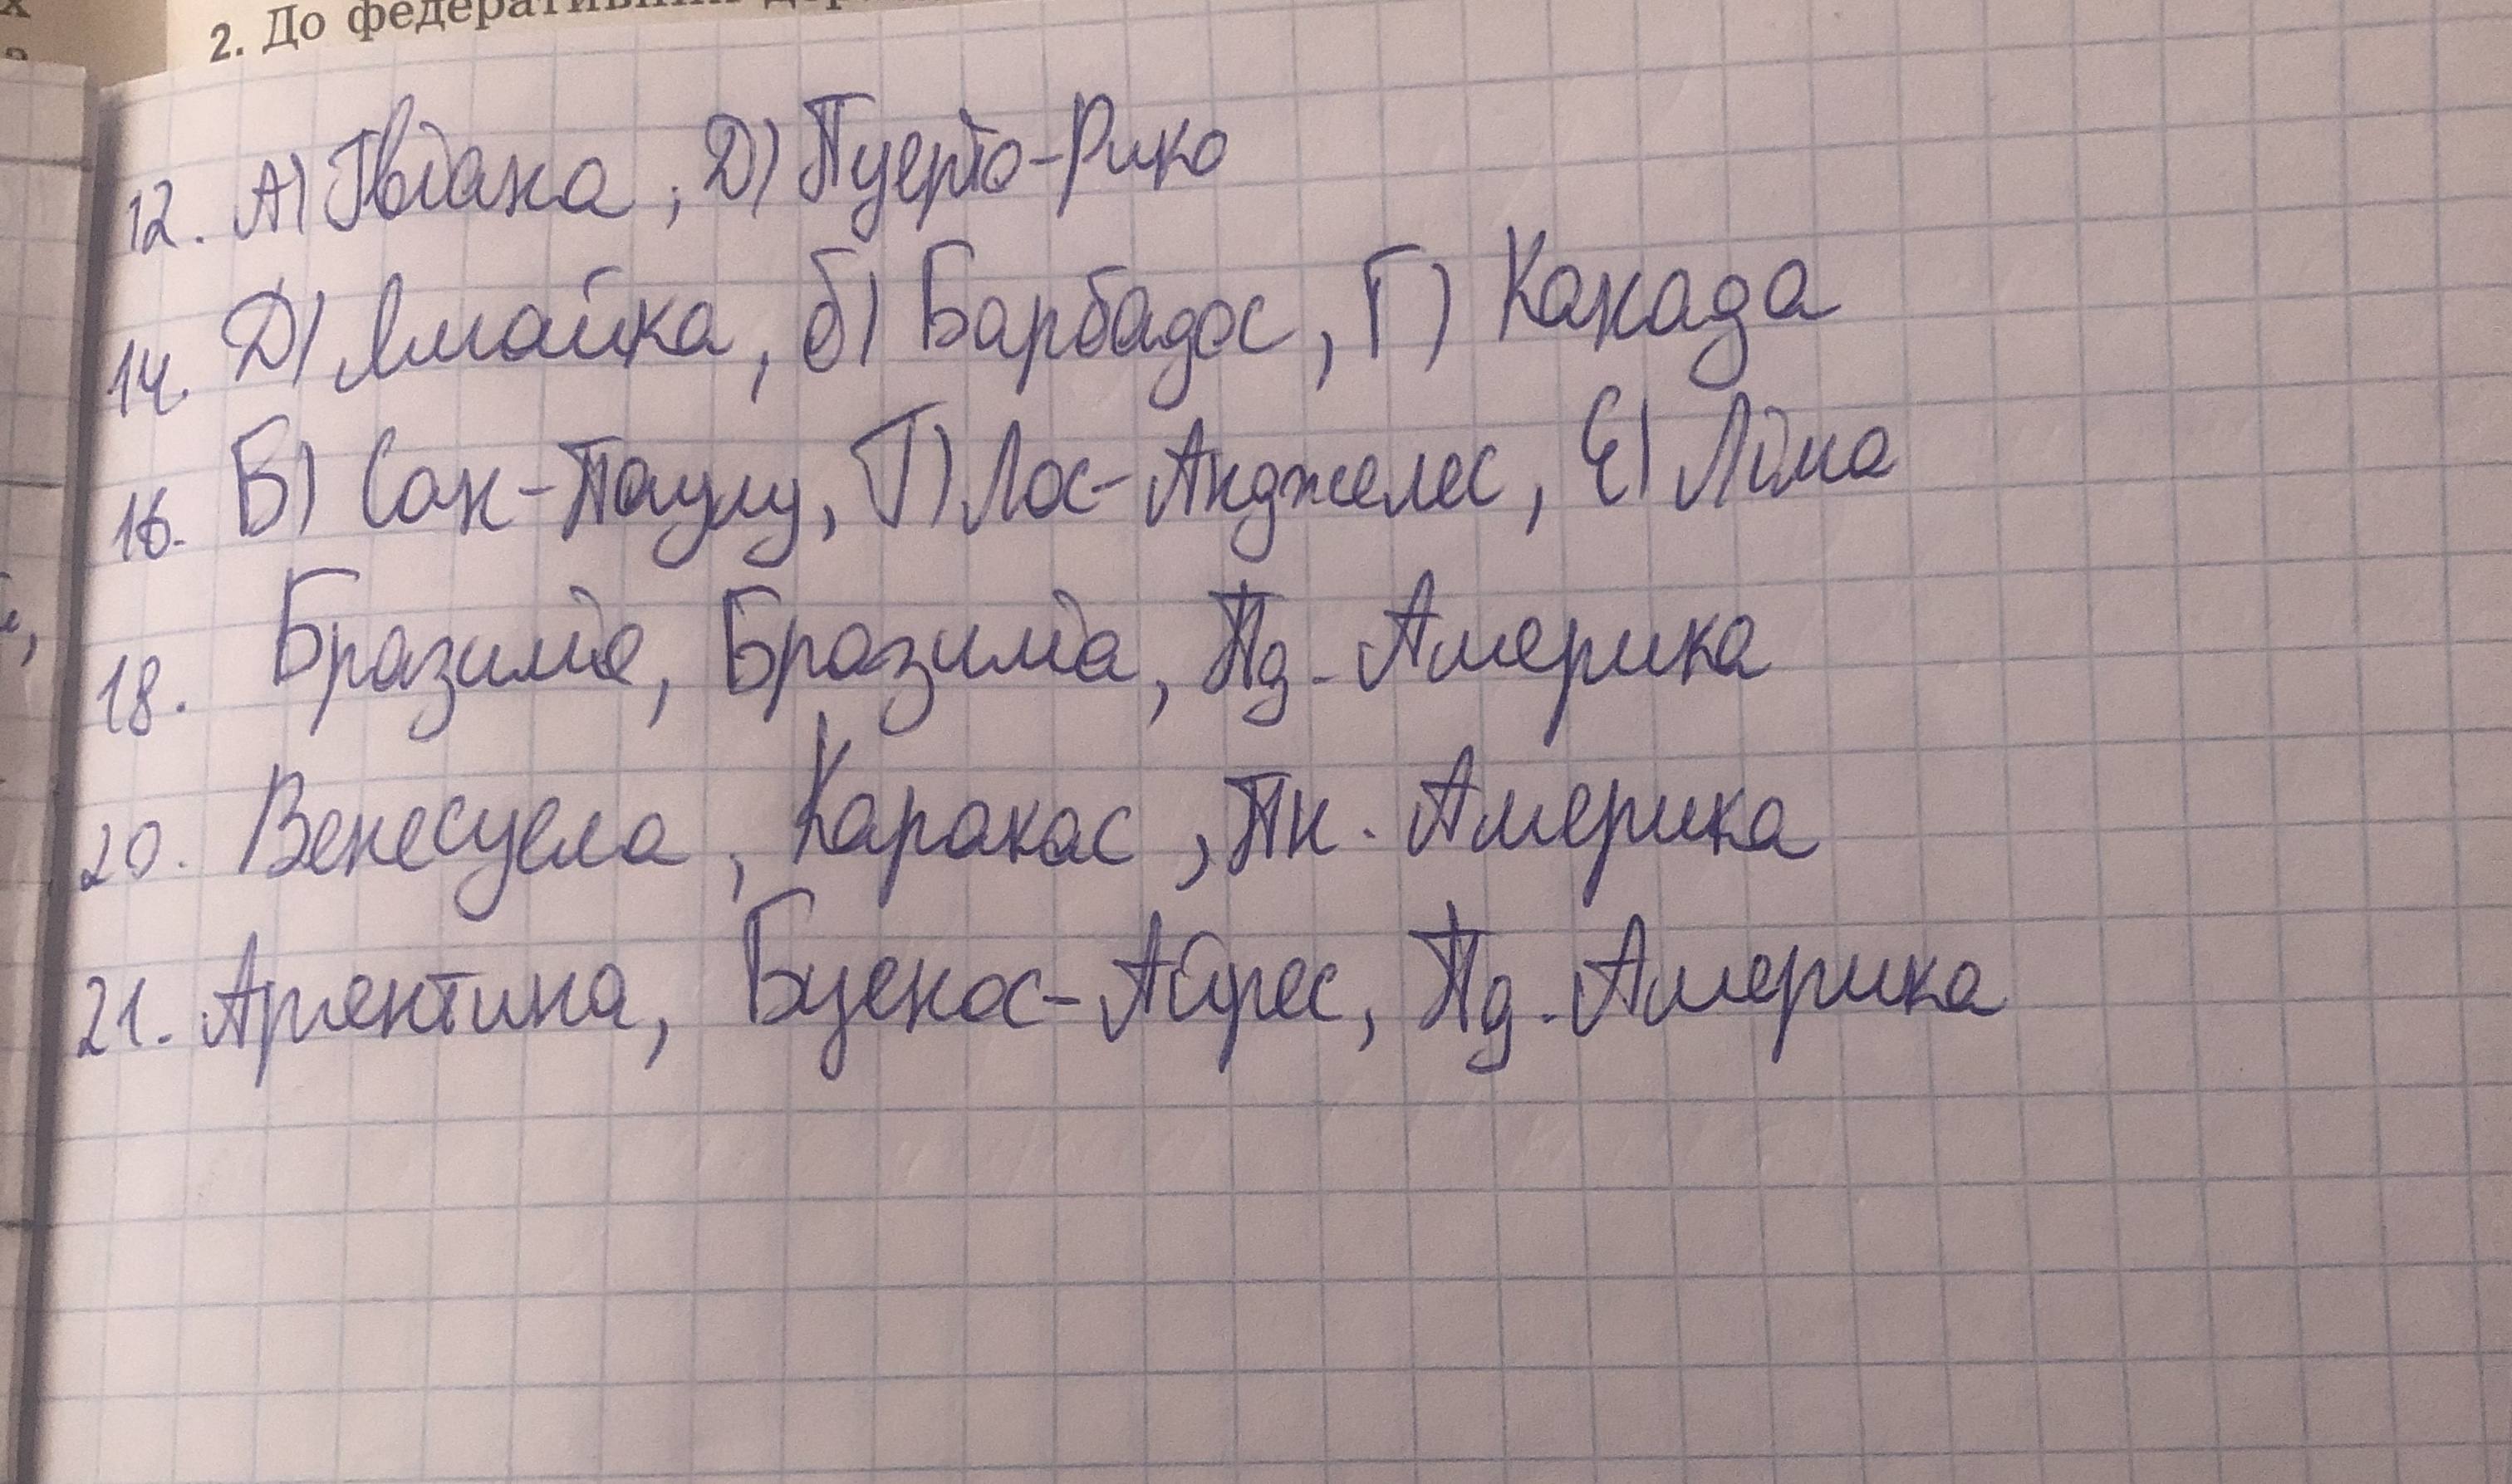 2. До федеративних
12. А) Гвіана, Д) Пуерто-Рико
14. Д) Ямайка, б) Барбадос, Г) Канада
16. Б) Сан-Паулу, Г) Лос-Анджелес, Є) Ліма
18. Бразилія, Бразиліа, Пд. Америка
20. Венесуела, Каракас, Пн. Америка
21. Аргентина, Буенос-Айрес, Пд. Америка